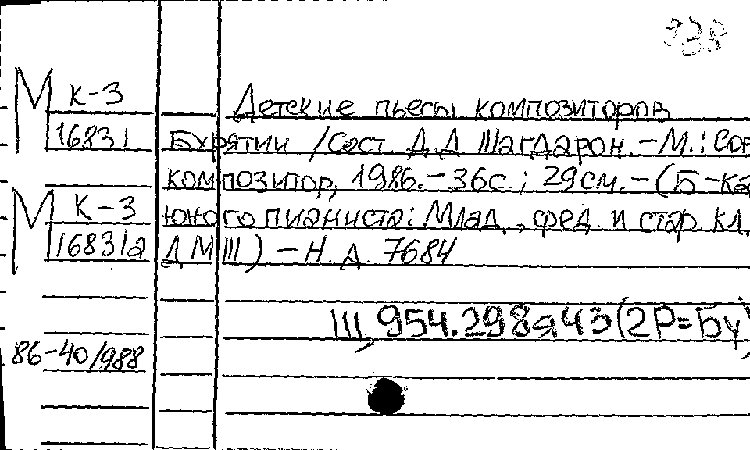 938
М К-3
16831
Детские пьесы композиторов
Бурятии / Сост. Д.Д Шагдарон. - М.: Сов
композитор, 1986. - 36с ; 29см. - (Б-ка
М К-3
16831а
юного пианиста: Млад., сред. и стар. кл.
ДМШ) - Н. Д. 7684
Ш, 954.298я43(2Р=Бу)
86-40/988